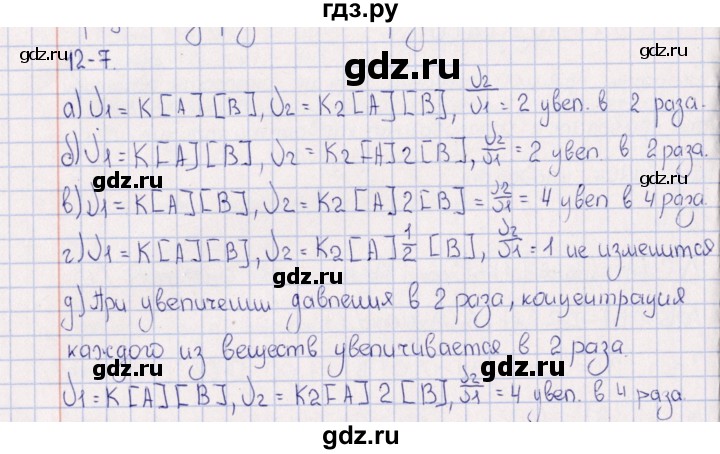 гдз.ру
gdz.ru
gdz.ru
12-7.
gdz.ru
а) υ1 = K [A] [B], υ2 = K2 [A] [B], υ2/υ1 = 2 увел. в 2 раза.
б) υ1 = K [A] [B], υ2 = K2 [A] 2 [B], υ2/υ1 = 2 увел в 2 раза.
gdz.ru
gdz.ru
в) υ1 = K [A] [B], υ2 = K2 [A] 2 [B] = υ2/υ1 = 4 увел в 4 раза.
г) υ1 = K [A] [B], υ2 = K2 [A] 1/2 [B], υ2/υ1 = 1 не изменится
gdz.ru
д) При увеличении давления в 2 раза, концентрация
каждого из веществ увеличивается в 2 раза.
gdz.ru
gdz.ru
υ1 = K [A] [B], υ2 = K2 [A] 2 [B], υ2/υ1 = 4 увел. в 4 раза.
gdz.ru